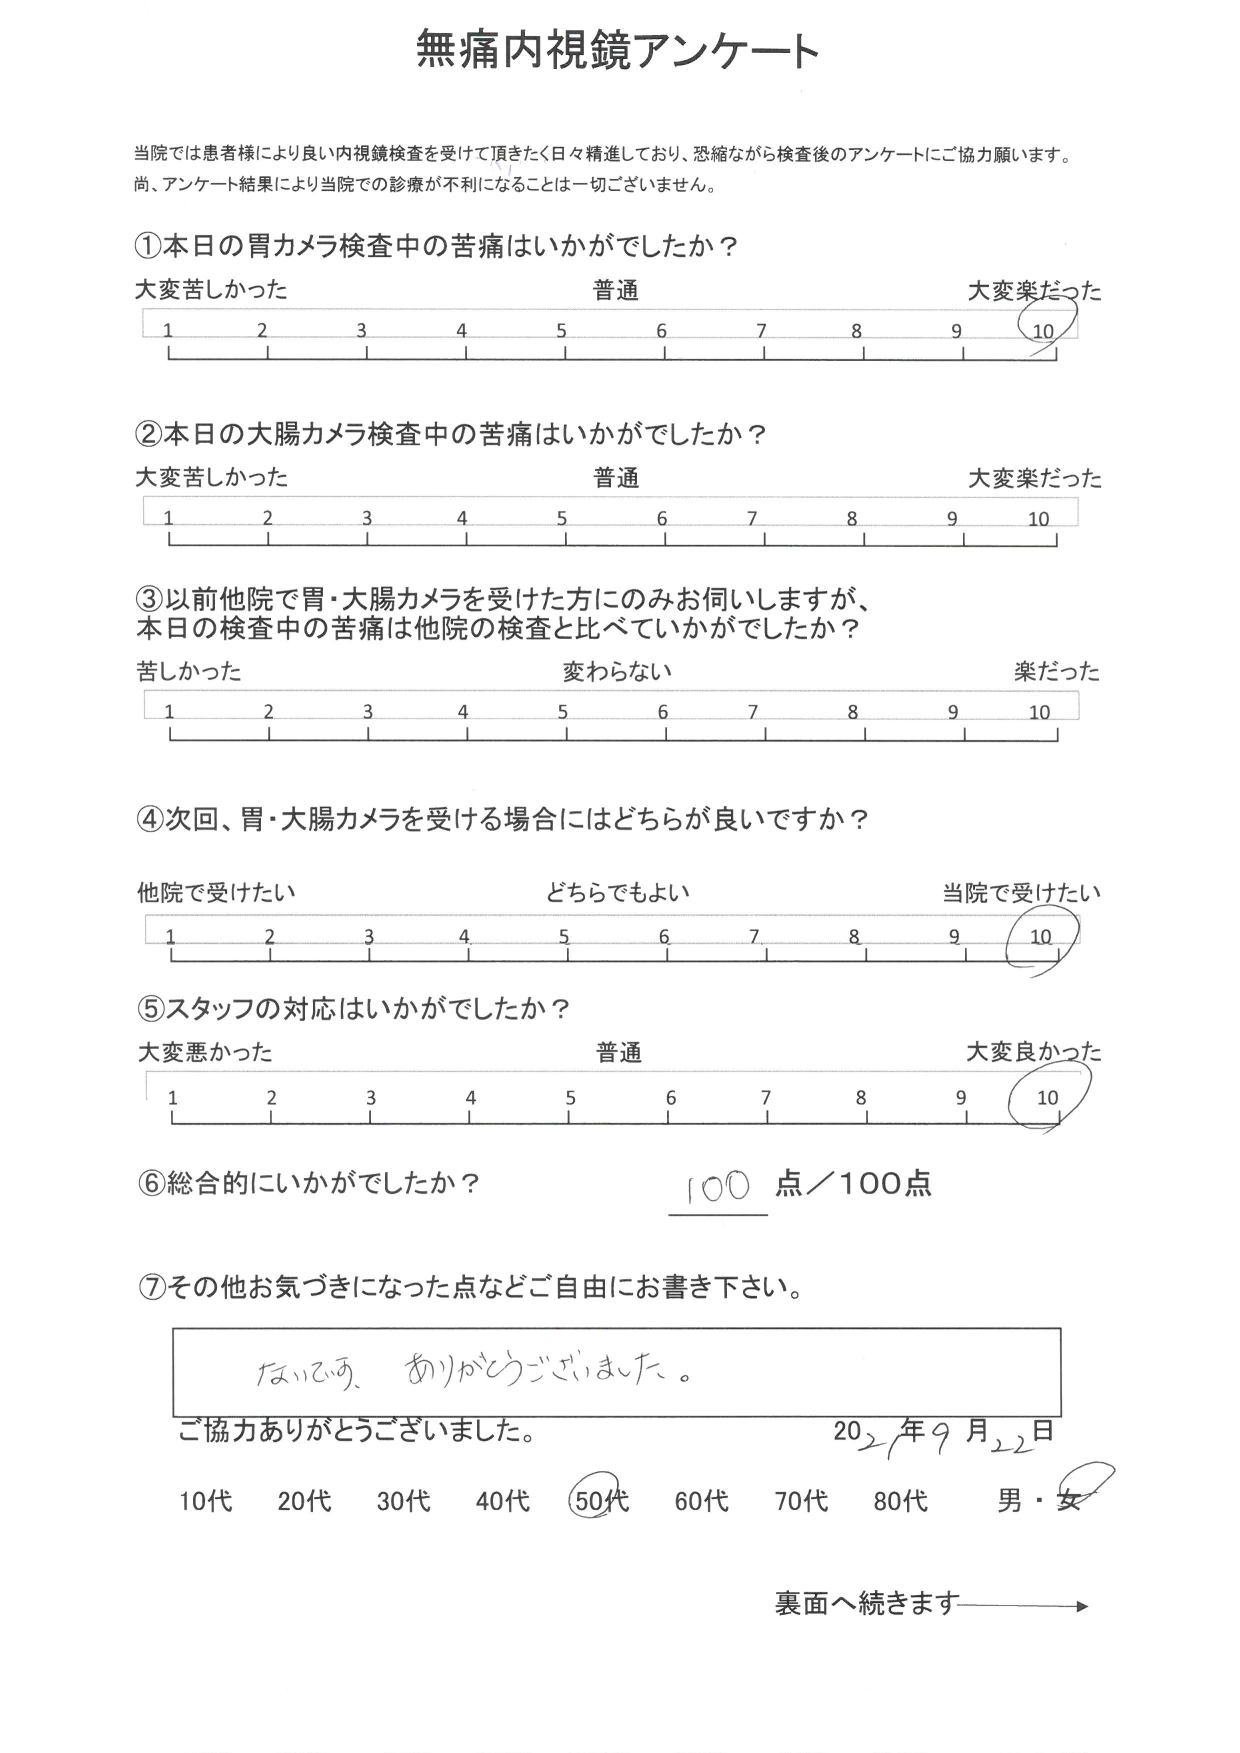 無痛内視鏡アンケート
当院では患者様により良い内視鏡検査を受けて頂きたく日々精進しており、恐縮ながら検査後のアンケートにご協力願います。
尚、アンケート結果により当院での診療が不利になることは一切ございません。
①本日の胃カメラ検査中の苦痛はいかがでしたか？
大変苦しかった 普通 大変楽だった
1 2 3 4 5 6 7 8 9 10
②本日の大腸カメラ検査中の苦痛はいかがでしたか？
大変苦しかった 普通 大変楽だった
1 2 3 4 5 6 7 8 9 10
③以前他院で胃・大腸カメラを受けた方にのみお伺いしますが、
本日の検査中の苦痛は他院の検査と比べていかがでしたか？
苦しかった 変わらない 楽だった
1 2 3 4 5 6 7 8 9 10
④次回、胃・大腸カメラを受ける場合にはどちらが良いですか？
他院で受けたい どちらでもよい 当院で受けたい
1 2 3 4 5 6 7 8 9 10
⑤スタッフの対応はいかがでしたか？
大変悪かった 普通 大変良かった
1 2 3 4 5 6 7 8 9 10
⑥総合的にいかがでしたか？ 100 点／100点
⑦その他お気づきになった点などご自由にお書き下さい。
ないです、ありがとうございました。
ご協力ありがとうございました。 2021年9月22日
10代 20代 30代 40代 50代 60代 70代 80代 男・女
裏面へ続きます